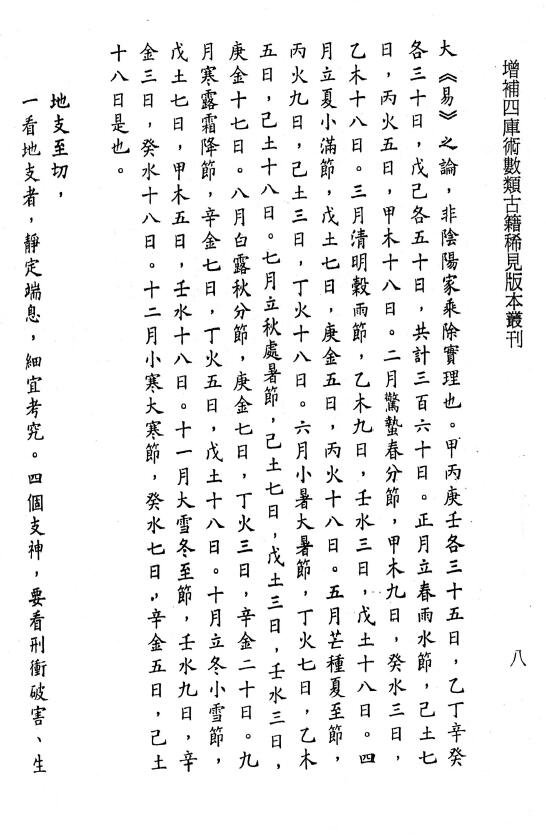 增補四庫術數類古籍稀見版本叢刊
八
大《易》之論，非陰陽家乘除實理也。甲丙庚壬各三十五日，乙丁辛癸
各三十日，戊己各五十日，共計三百六十日。正月立春雨水節，己土七
日，丙火五日，甲木十八日。二月驚蟄春分節，甲木九日，癸水三日，
乙木十八日。三月清明穀雨節，乙木九日，壬水三日，戊土十八日。四
月立夏小滿節，戊土七日，庚金五日，丙火十八日。五月芒種夏至節，
丙火九日，己土三日，丁火十八日。六月小暑大暑節，丁火七日，乙木
五日，己土十八日。七月立秋處暑節，己土七日，戊土三日，壬水三日，
庚金十七日。八月白露秋分節，庚金七日，丁火三日，辛金二十日。九
月寒露霜降節，辛金七日，丁火五日，戊土十八日。十月立冬小雪節，
戊土七日，甲木五日，壬水十八日。十一月大雪冬至節，壬水九日，辛
金三日，癸水十八日。十二月小寒大寒節，癸水七日，辛金五日，己土
十八日是也。
地支至切，
一看地支者，靜定喘息，細宜考究。四個支神，要看刑衝破害、生